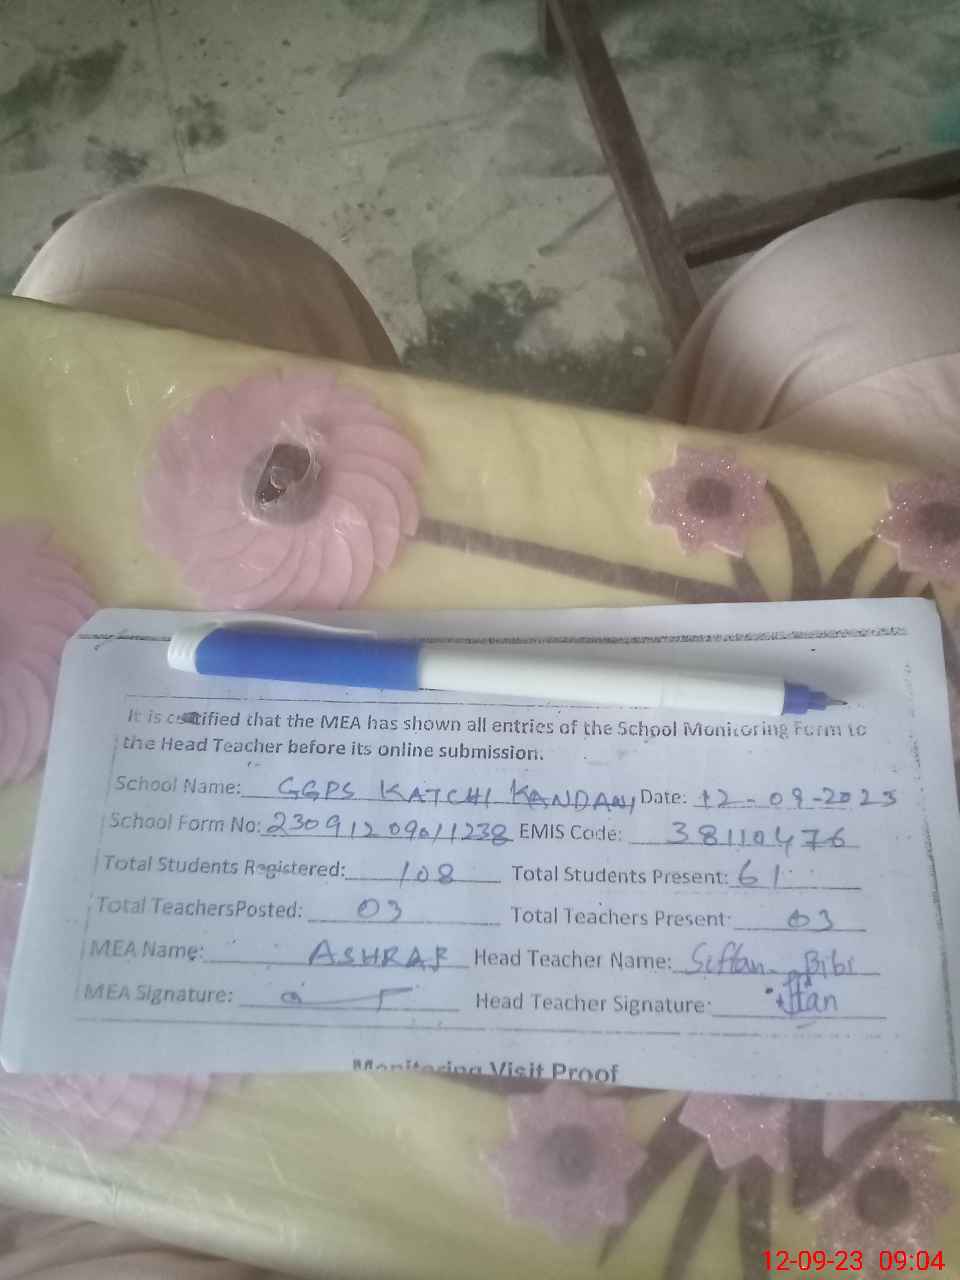 It is certified that the MEA has shown all entries of the School Monitoring Form to
the Head Teacher before its online submission.
School Name: GGPS KATCHI KANDANI Date: 12-09-2023
School Form No: 23091209011238 EMIS Code: 38110476
Total Students Registered: 108 Total Students Present: 61
Total TeachersPosted: 03 Total Teachers Present: 03
MEA Name: ASHRAF Head Teacher Name: Bibi
MEA Signature: Head Teacher Signature:
Monitoring Visit Proof
12-09-23 09:04